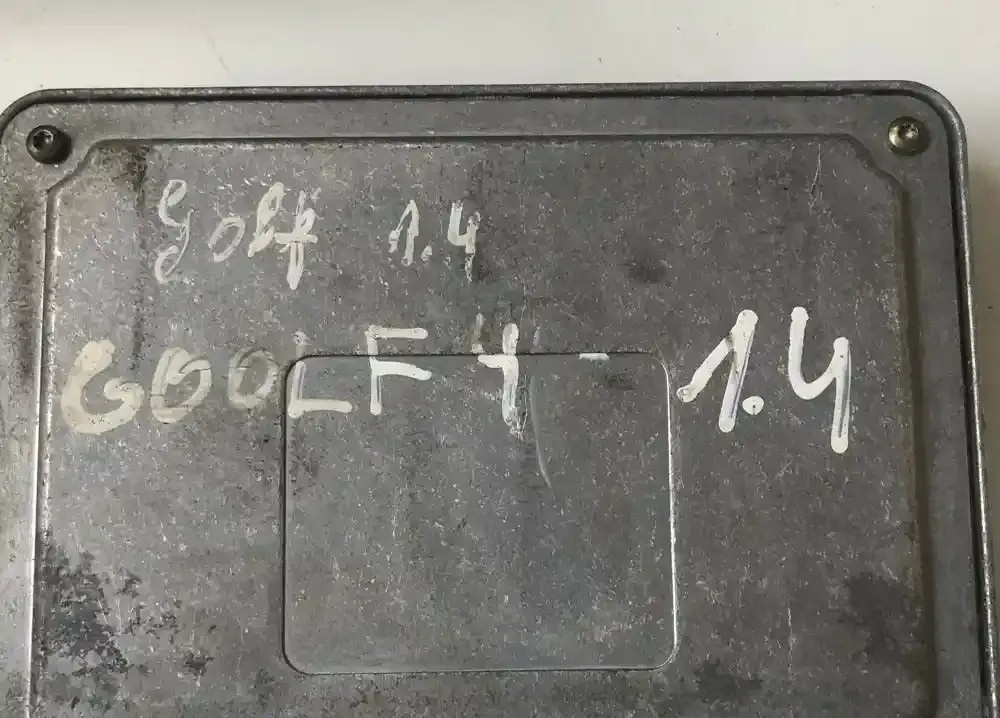 Golf 1.4
GOOLF 4 - 1.4